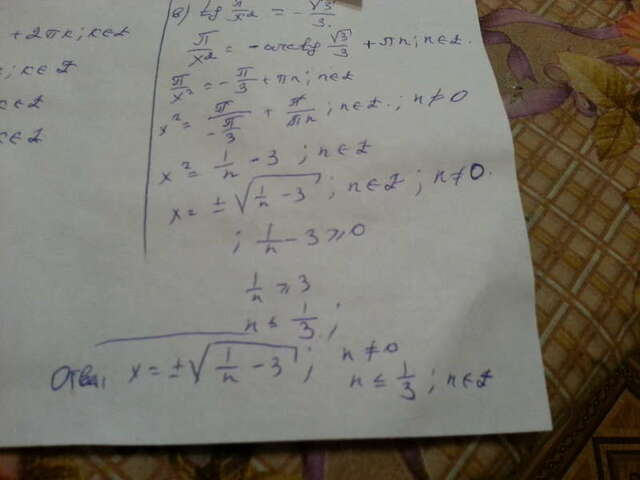 + 2πk; k∈Z
; k∈Z
k∈Z
k∈Z
в) tg π/x² = -√3/3.
π/x² = -arctg √3/3 + πn; n∈Z.
π/x² = -π/3 + πn; n∈Z
x² = π/(-π/3) + π/πn; n∈Z.; n≠0
x² = 1/n - 3; n∈Z
x = ±√(1/n - 3); n∈Z; n≠0.
; 1/n - 3 ≥ 0
1/n ≥ 3
n ≤ 1/3;
Ответ: x = ±√(1/n - 3); n≠0
n ≤ 1/3; n∈Z